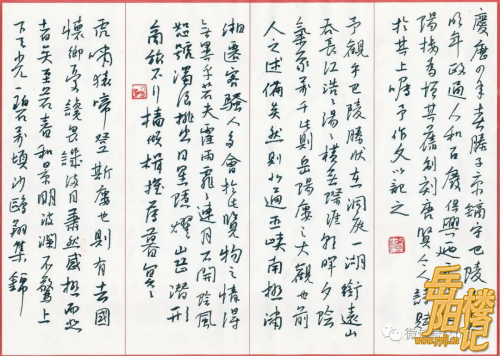 慶曆四年春滕子京謫守巴陵
明年政通人和百廢具興乃
陽樓增其舊制刻唐賢今人詩賦
於其上囑予作文以記之
予觀夫巴陵勝狀在洞庭一湖銜遠山
吞長江浩〻湯〻橫無際涯朝暉夕陰
氣象萬千此則岳陽樓之大觀也前
人之述備矣然則北通巫峽南極瀟
湘遷客騷人多會於此覽物之情得
無異乎若夫霪雨霏〻連月不開陰風
怒號濁浪排空日星隱耀山岳潛形
商旅不行檣傾楫摧薄暮冥〻
虎嘯猿啼登斯樓也則有去國
懷鄉憂讒畏譏滿目蕭然感極而悲
者矣至若春和景明波瀾不驚上
下天光一碧萬頃沙鷗翔集錦
岳阳楼记